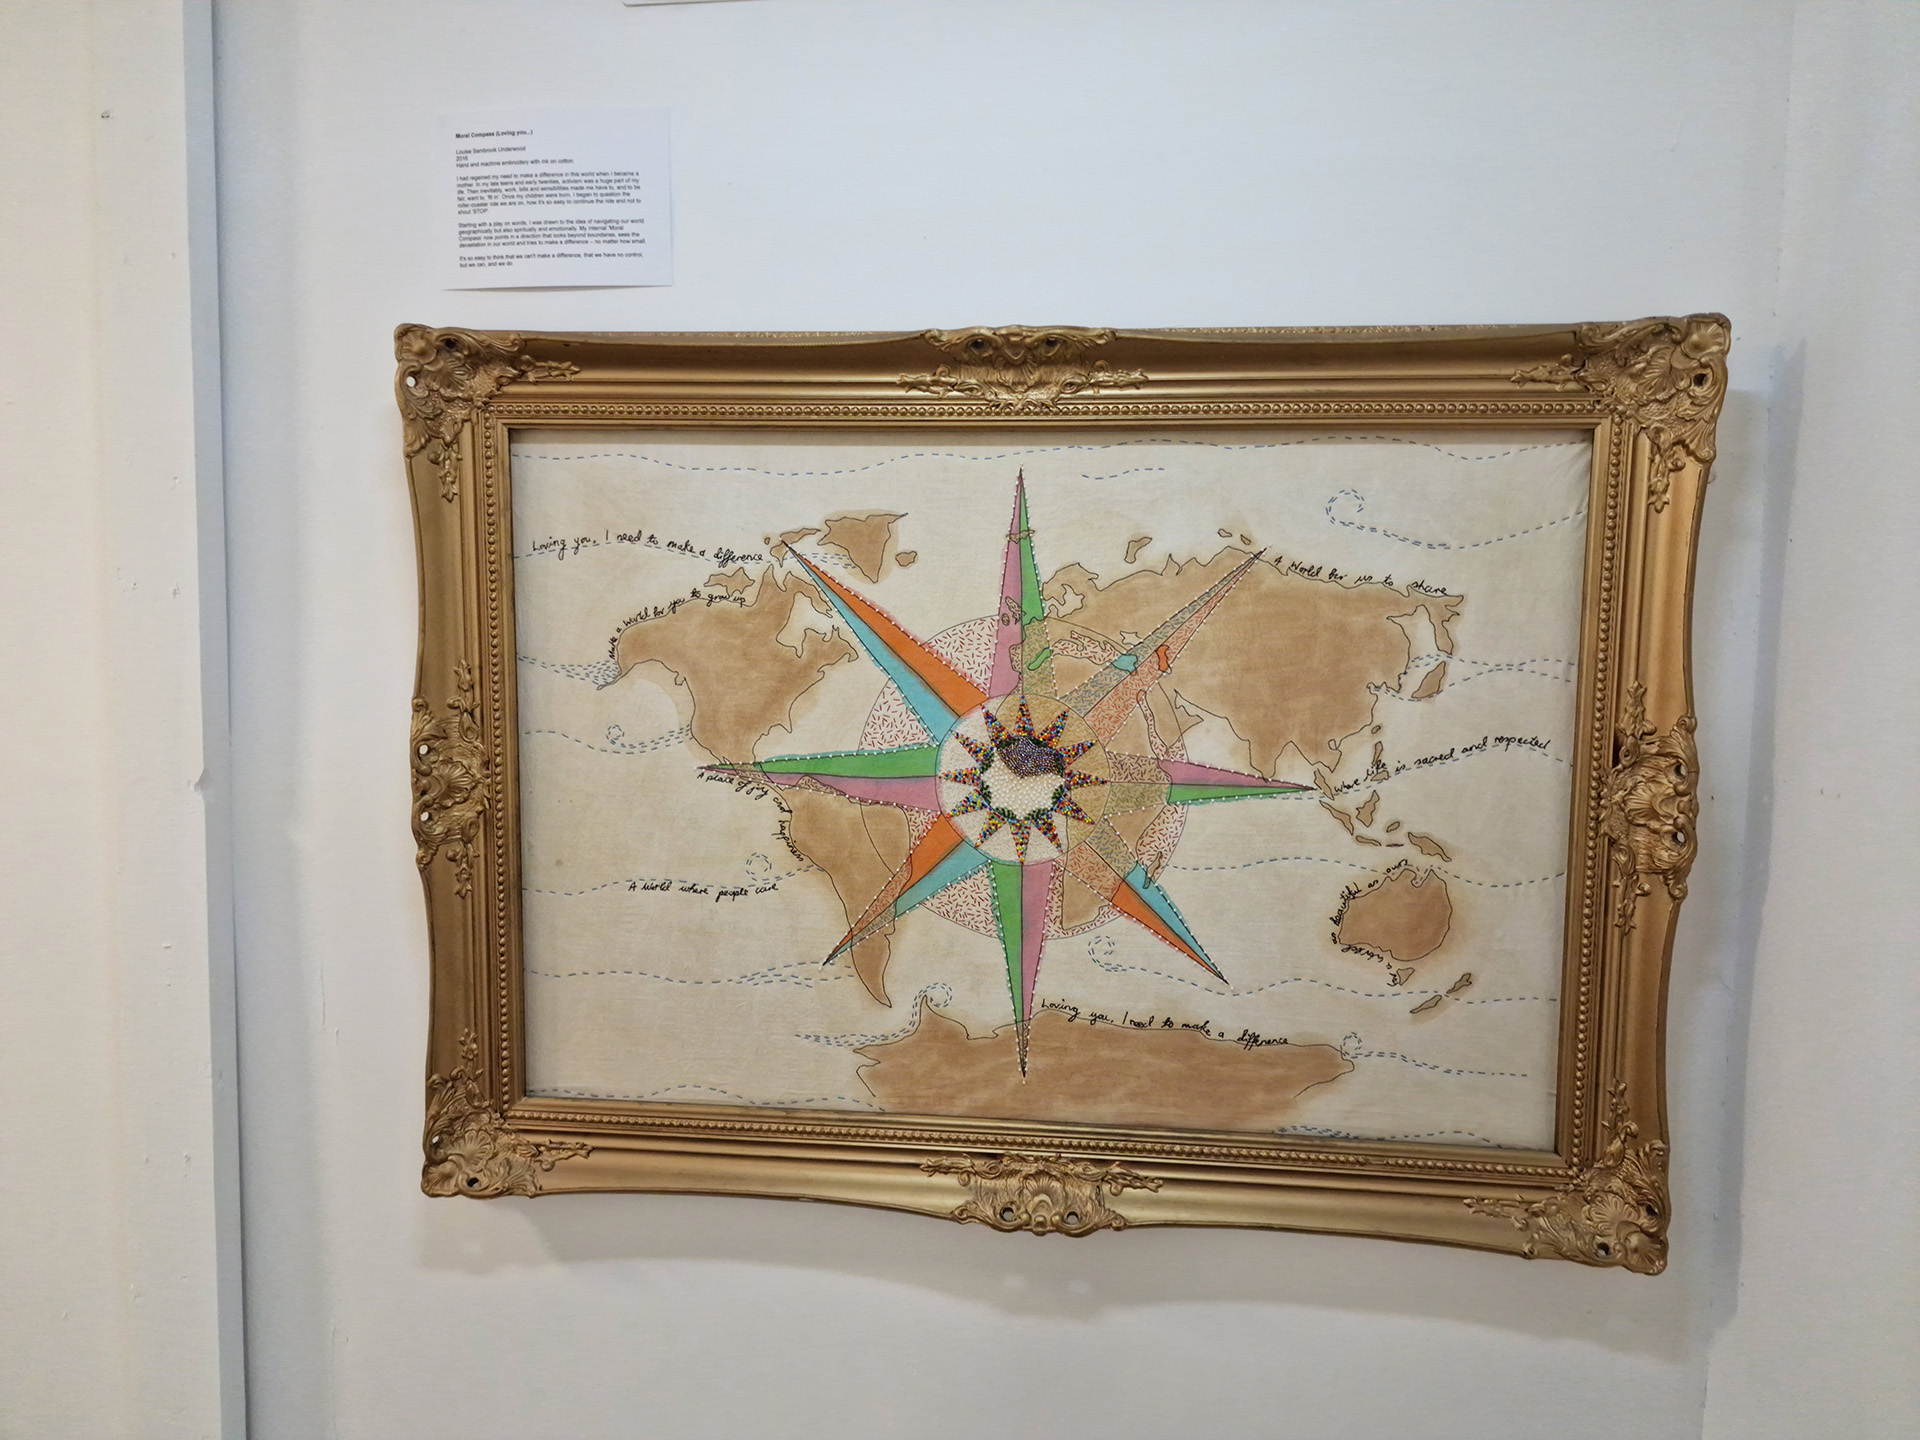 Moral Compass (Loving you...)
Louise Sambrook Underwood
2016
Hand and machine embroidery with ink on cotton.
I had regained my need to make a difference in this world when I became a
mother. In my late teens and early twenties, activism was a huge part of my
life. Then inevitably, work, bills and sensibilities made me have to, and to be
fair, want to, 'fit in'. Once my children were born, I began to question the
roller-coaster ride we are on, how it's so easy to continue the ride and not to
shout 'STOP'.
Starting with a play on words, I was drawn to the idea of navigating our world
geographically but also spiritually and emotionally. My internal 'Moral
Compass' now points in a direction that looks beyond boundaries, sees the
devastation in our world and tries to make a difference – no matter how small.
It's so easy to think that we can't make a difference, that we have no control,
but we can, and we do.
Loving you, I need to make a difference
Make a world for you to grow up
A world for us to share
Where life is sacred and respected
A place of joy and happiness
A world where people care
For a world as beautiful as ours
Loving you, I need to make a difference